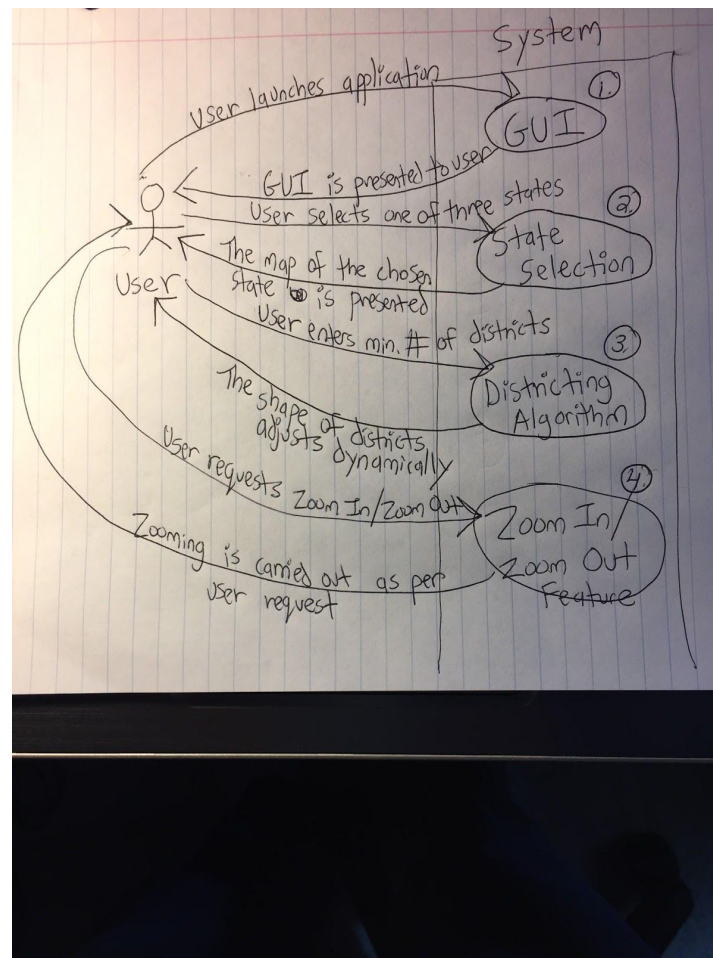 System
User launches application
1.
GUI
GUI is presented to user
User selects one of three states
2.
State
Selection
The map of the chosen
state is presented
User
User enters min. # of districts
3.
Districting
Algorithm
The shape of districts
adjusts dynamically
User requests Zoom In/Zoom Out
4.
Zoom In/
Zoom Out
Feature
Zooming is carried out as per
user request